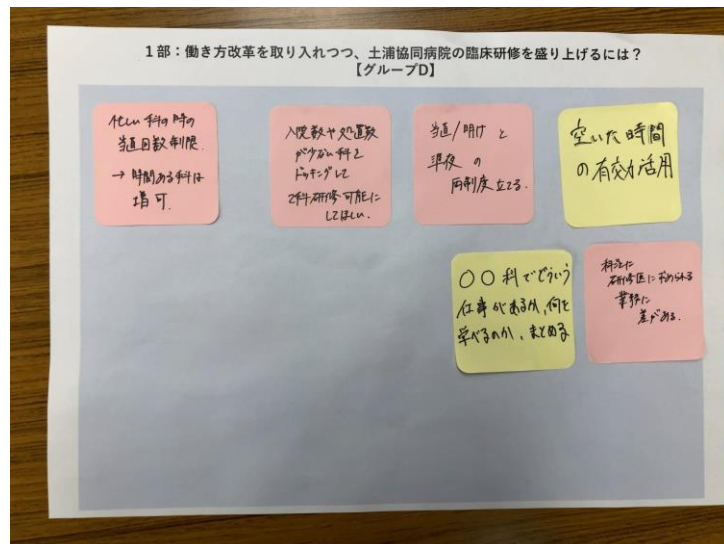 1部：働き方改革を取り入れつつ、土浦協同病院の臨床研修を盛り上げるには？
【グループD】
忙しい科の時の
当直回数制限.
→ 時間ある科は
増可.
入院数や処置数
が少ない科と
ドッキングして
2科研修可能に
してほしい.
当直/明けと
準夜の
両制度立てる.
空いた時間
の有効活用
〇〇科でどういう
仕事があるか,何を
学べるのか、まとめる
科ごとに
研修医に求められる
業務に
差がある.